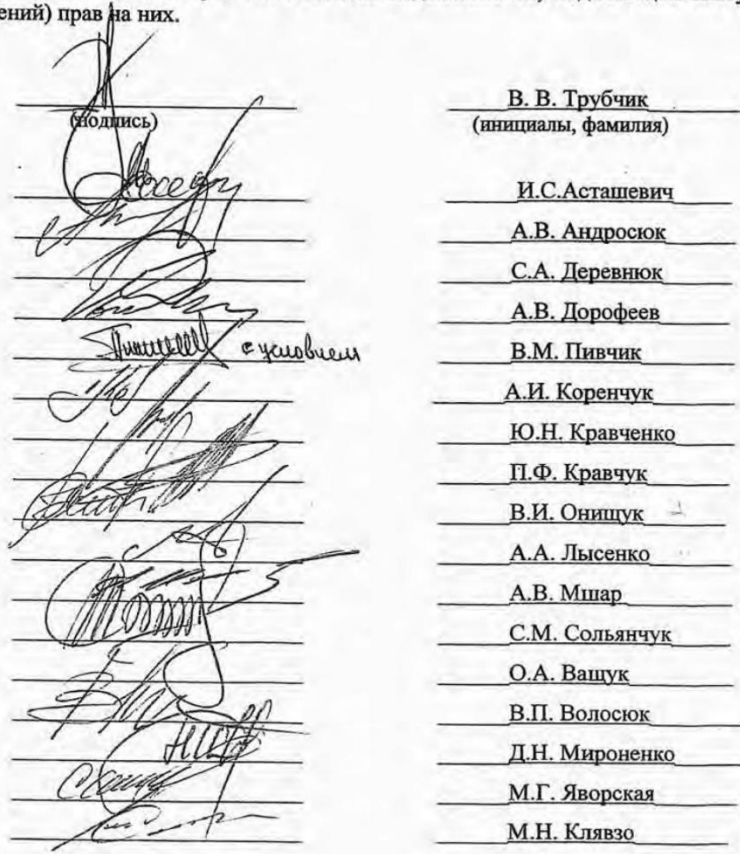 ений) прав на них.
В. В. Трубчик
(подпись) (инициалы, фамилия)
И.С.Асташевич
А.В. Андросюк
С.А. Деревнюк
А.В. Дорофеев
с условием В.М. Пивчик
А.И. Коренчук
Ю.Н. Кравченко
П.Ф. Кравчук
В.И. Онищук
А.А. Лысенко
А.В. Мшар
С.М. Сольянчук
О.А. Ващук
В.П. Волосюк
Д.Н. Мироненко
М.Г. Яворская
М.Н. Клявзо